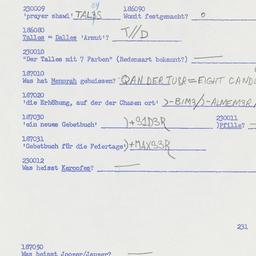 230009 186090
'prayer shawl' TALIS Womit festgemacht? 0
186080
Talles = Dalles 'Armut'? T//D
230010
"Der Talles mit 7 Farben" (Redensart bekannt?) —
187010
Was hat Menorah geheissen? QAN DER = EIGHT CANDL
187020
'die Erhöhung, auf der der Chasen ort' )-BIM3/)-ALMEM3R/
187030 230011
'ein neues Gebetbuch' )+SID3R )Pfille? —
187031
'Gebetbuch für die Feiertage' )+MAXS3R
230012
Was heisst Karpofes? —
231
187050
Was heisst Jooser/Jauser? —